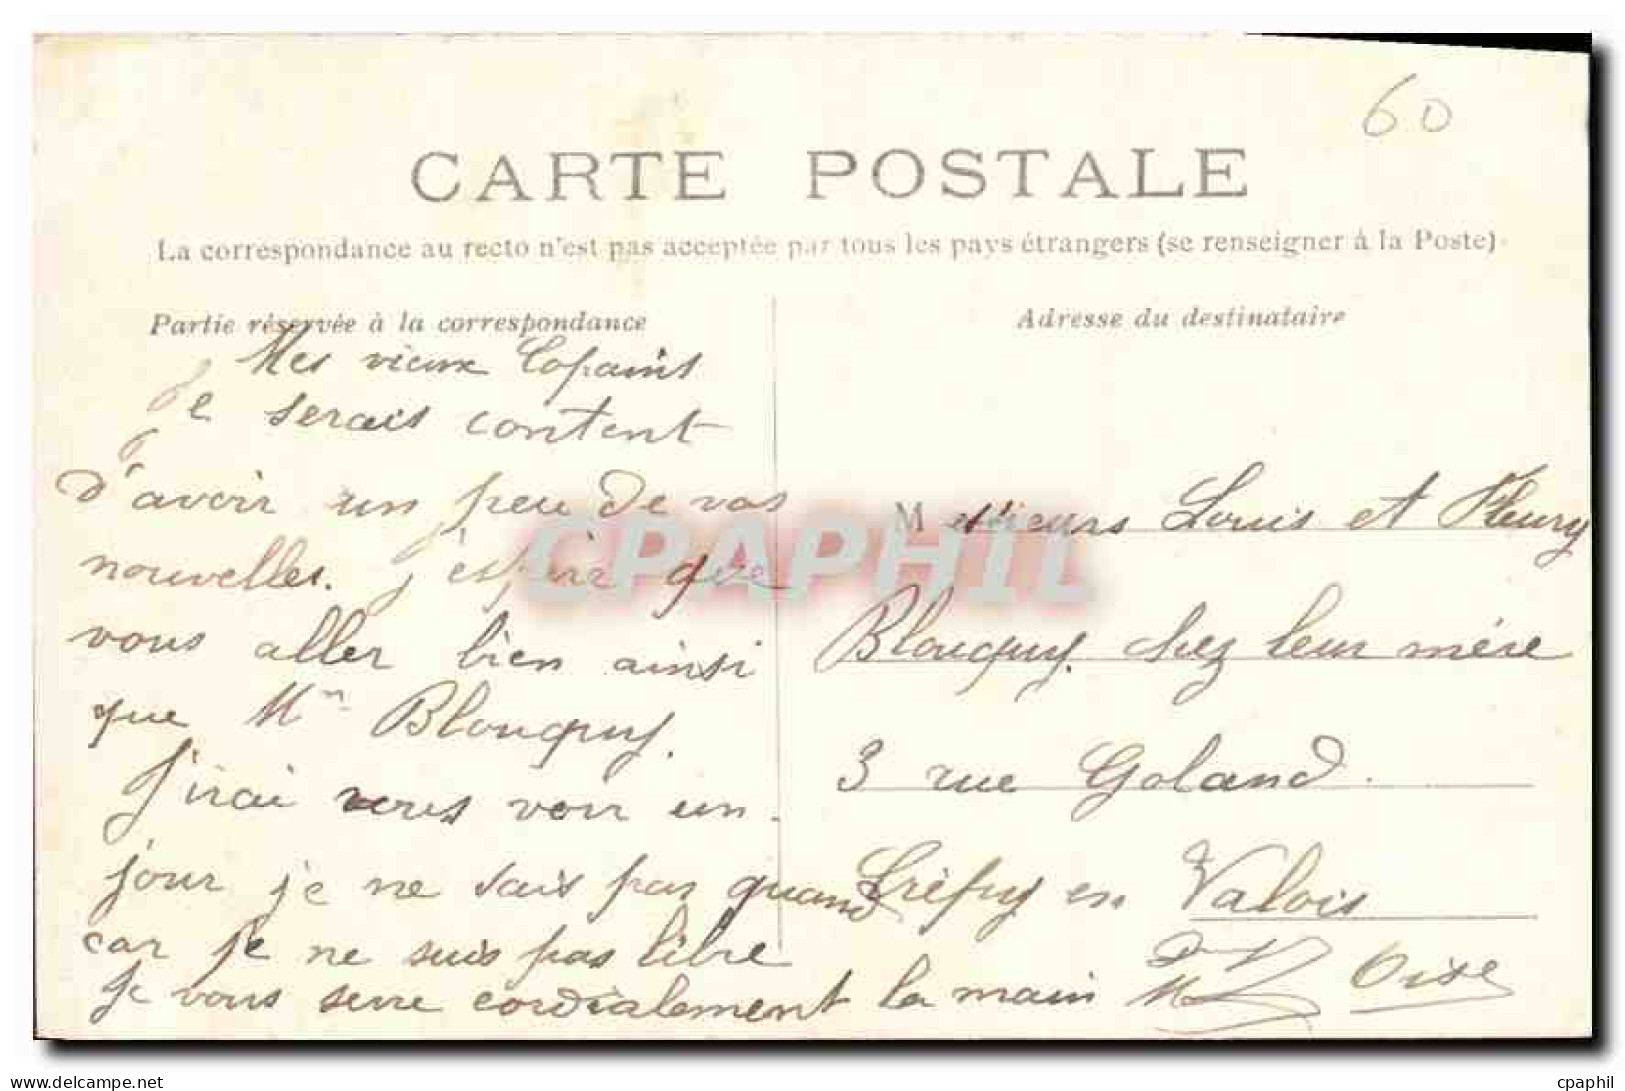 60
CARTE POSTALE
La correspondance au recto n'est pas acceptée par tous les pays étrangers (se renseigner à la Poste)
Partie réservée à la correspondance
Mes vieux Copains
Je serais content
d'avoir un peu de vos
nouvelles. j'espère que
vous aller bien ainsi
que Mm Blouquy.
J'irai vous voir un
jour je ne sais pas quand
car je ne suis pas libre
Je vous serre cordialement la main
Adresse du destinataire
Messieurs Louis et Fleury
Blouquy. chez leur mére
3 rue Goland
Crépy en Valois
Oise
CPAPHIL
www.delcampe.net
cpaphil